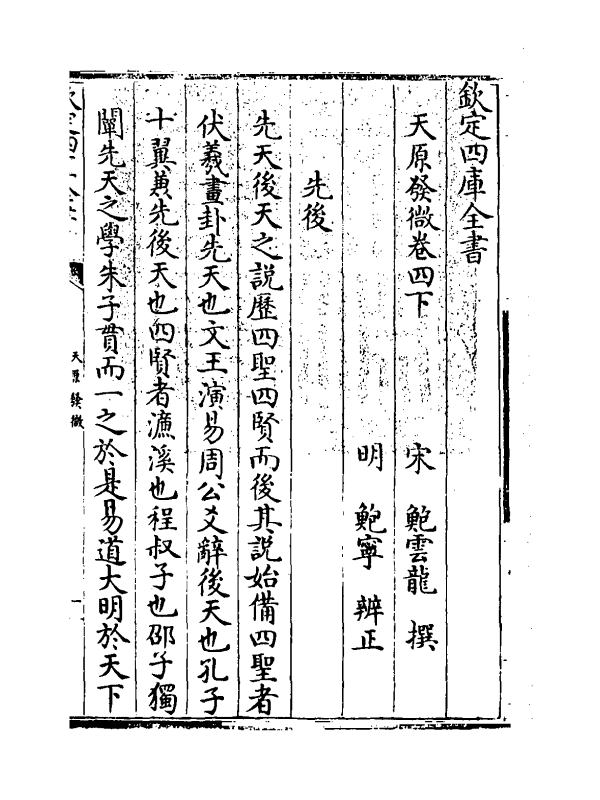 欽定四庫全書
天原發微卷四下
宋 鮑雲龍 撰
明 鮑寧 辨正
先後
先天後天之説歷四聖四賢而後其説始備四聖者
伏羲畫卦先天也文王演易周公爻辭後天也孔子
十翼兼先後天也四賢者濂溪也程叔子也邵子獨
闡先天之學朱子貫而一之於是易道大明於天下
天原發微
一